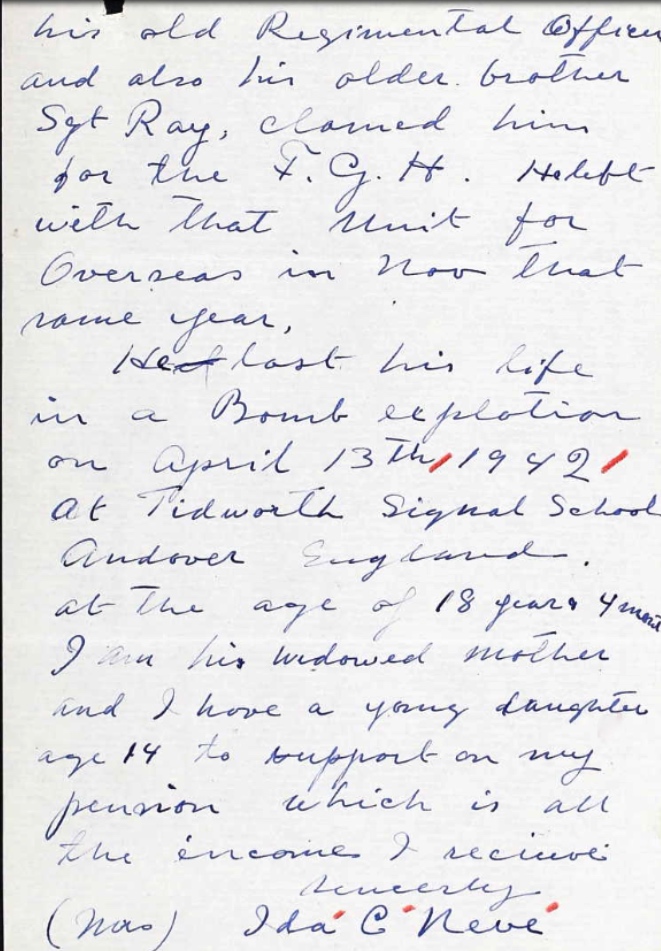 his old Regimental Officer
and also his older brother
Sgt Ray, clamed him
for the F. G. H. He left
with that Unit for
Overseas in Nov that
same year,
He lost his life
in a Bomb explotion
on April 13th, 1942,
At Tidworth Signal School
Andover England.
at the age of 18 years 4 mont
I am his widowed mother
and I have a young daughter
age 14 to support on my
pension which is all
the income I recieve
Sincerly
(Mrs) Ida C Neve